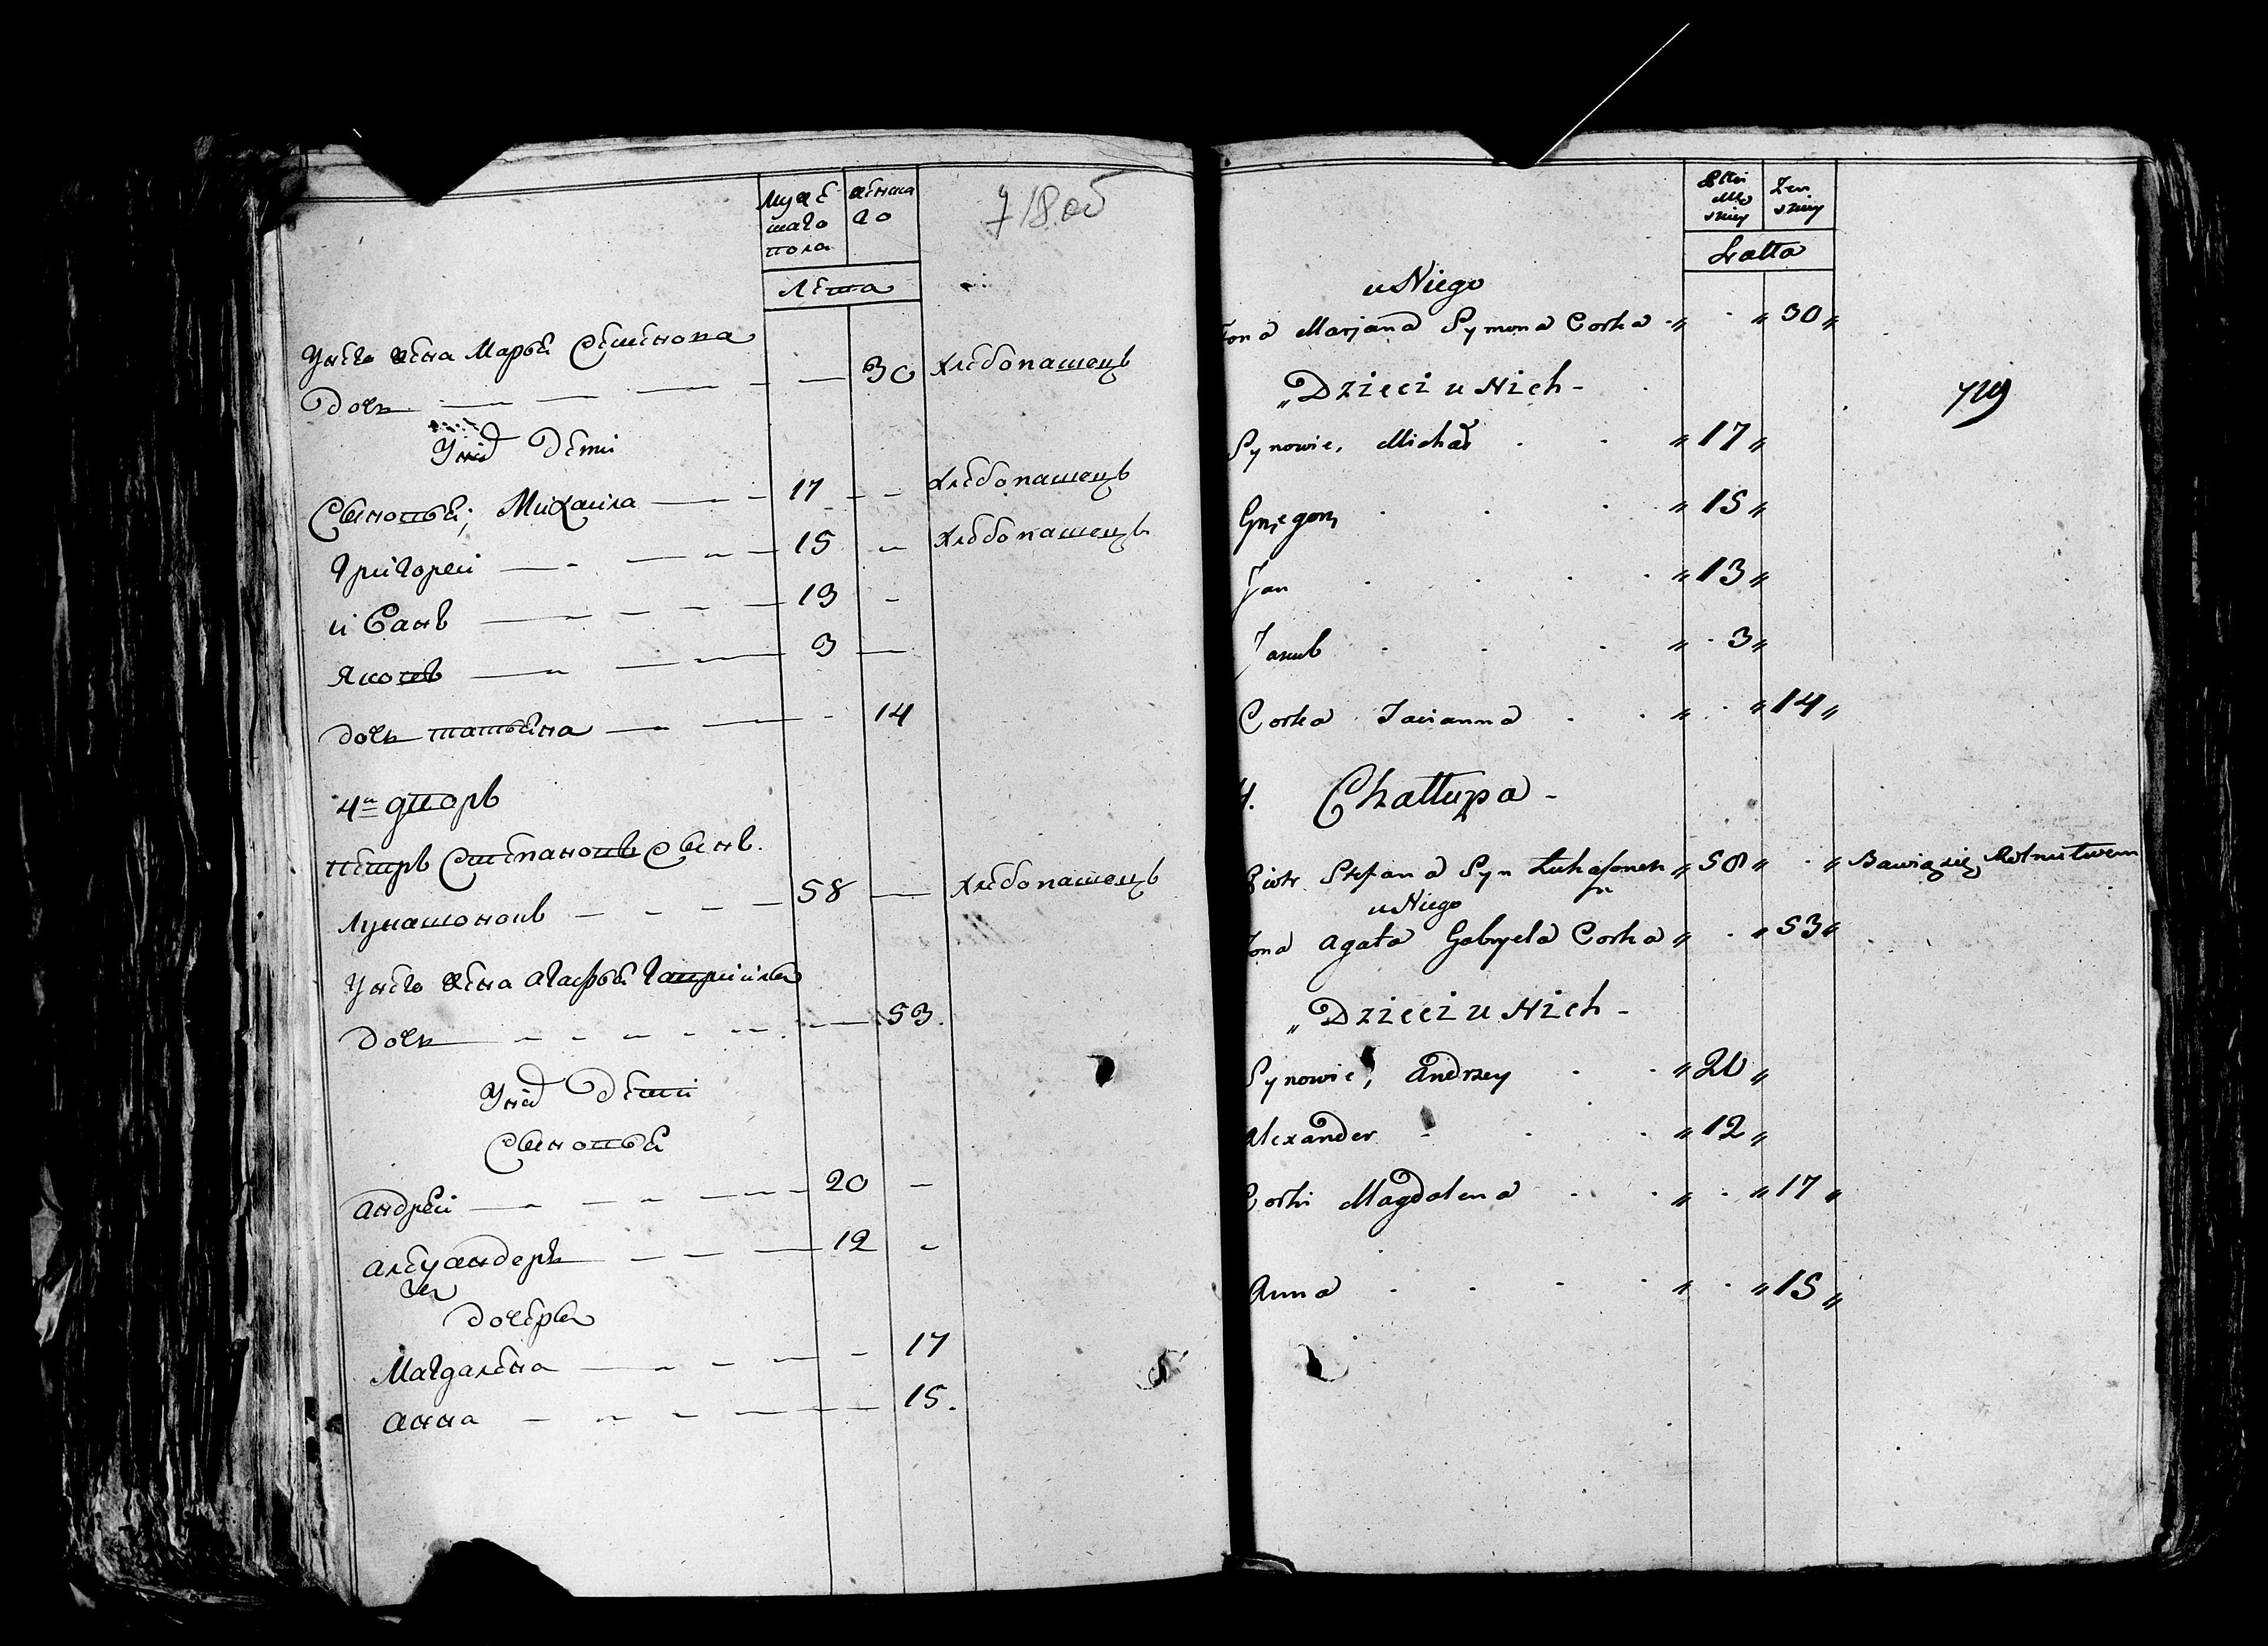 мужескаго пола
женскаго
718 об
Лета
Унего жена Марья Семенова
Дочь 30 хлебопашецъ
Уних Дети
Сыновья; Михаила 17 хлебопашецъ
Григорей 15 хлебопашецъ
и Еанъ 13
Яковъ 3
дочь татьяна 14
4й дворъ
петръ Степановъ Сынъ
Лукашонокъ 58 хлебопашецъ
Унего жена агафья гаврiила
Дочь 53
Уних Дети
Сыновья
андрей 20
алеxандеръ 12
Их
Дочеры
Магдалена 17
анна 15
Płci Męzkiey
Zenskiey
Latta
u Niego
Zona Marjana Symona Corka " " 30 "
719
„Dzieci u Nich -
Synowie, Michał " 17 "
Grzegorz " 15 "
Jan " 13 "
Jakub " 3 "
Corka Tacianna " " 14 "
4. Chattupa -
Piotr Stefana Syn Łukaszonek " 58 " " Bawią się Rolnictwem
u Niego
Zona Agata Gabryela Corka " " 53 "
„Dzieci u Nich -
Synowie, Andrzey " 20 "
Alexander " 12 "
Corki Magdalena " " 17 "
Anna " " 15 "